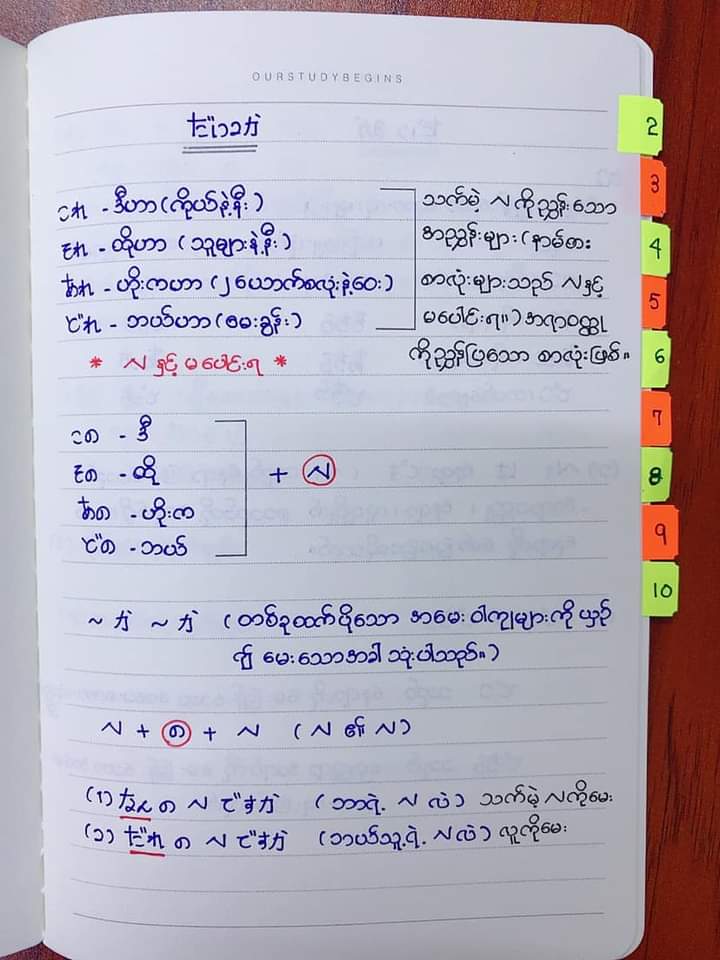 OURSTUDYBEGINS
だい2か
これ - ဒီဟာ (ကိုယ်နဲ့နီး)
それ - ထိုဟာ (သူများနဲ့နီး)
あれ - ဟိုးကဟာ (၂ယောက်စလုံးနဲ့ဝေး)
どれ - ဘယ်ဟာ (မေးခွန်း)
* N နှင့် မပေါင်းရ *
သက်မဲ့ N ကိုညွှန်းသော
အညွှန်းများ (နာမ်စား
စာလုံးများသည် N နှင့်
မပေါင်းရ။) အရာဝတ္ထု
ကိုညွှန်ပြသော စာလုံးဖြစ်။
この - ဒီ
その - ထို
あの - ဟိုးက
どの - ဘယ်
+ N
~ か ~ か (တစ်ခုထက်ပိုသော အမေးဝါကျများကို ယှဉ်
၍ မေးသောအခါ သုံးပါသည်။)
N + の + N (N ၏ N)
(၁) なん の N ですか (ဘာရဲ့ N လဲ) သက်မဲ့ N ကိုမေး
(၂) だれ の N ですか (ဘယ်သူ့ရဲ့ N လဲ) လူကိုမေး
2
3
4
5
6
7
8
9
10